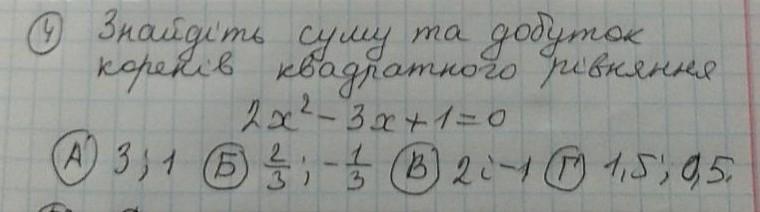 ④ Знайдіть суму та добуток
коренів квадратного рівняння
2x² - 3x + 1 = 0
Ⓐ 3; 1 Ⓑ 2/3; -1/3 Ⓥ 2; -1 Ⓖ 1,5; 0,5.